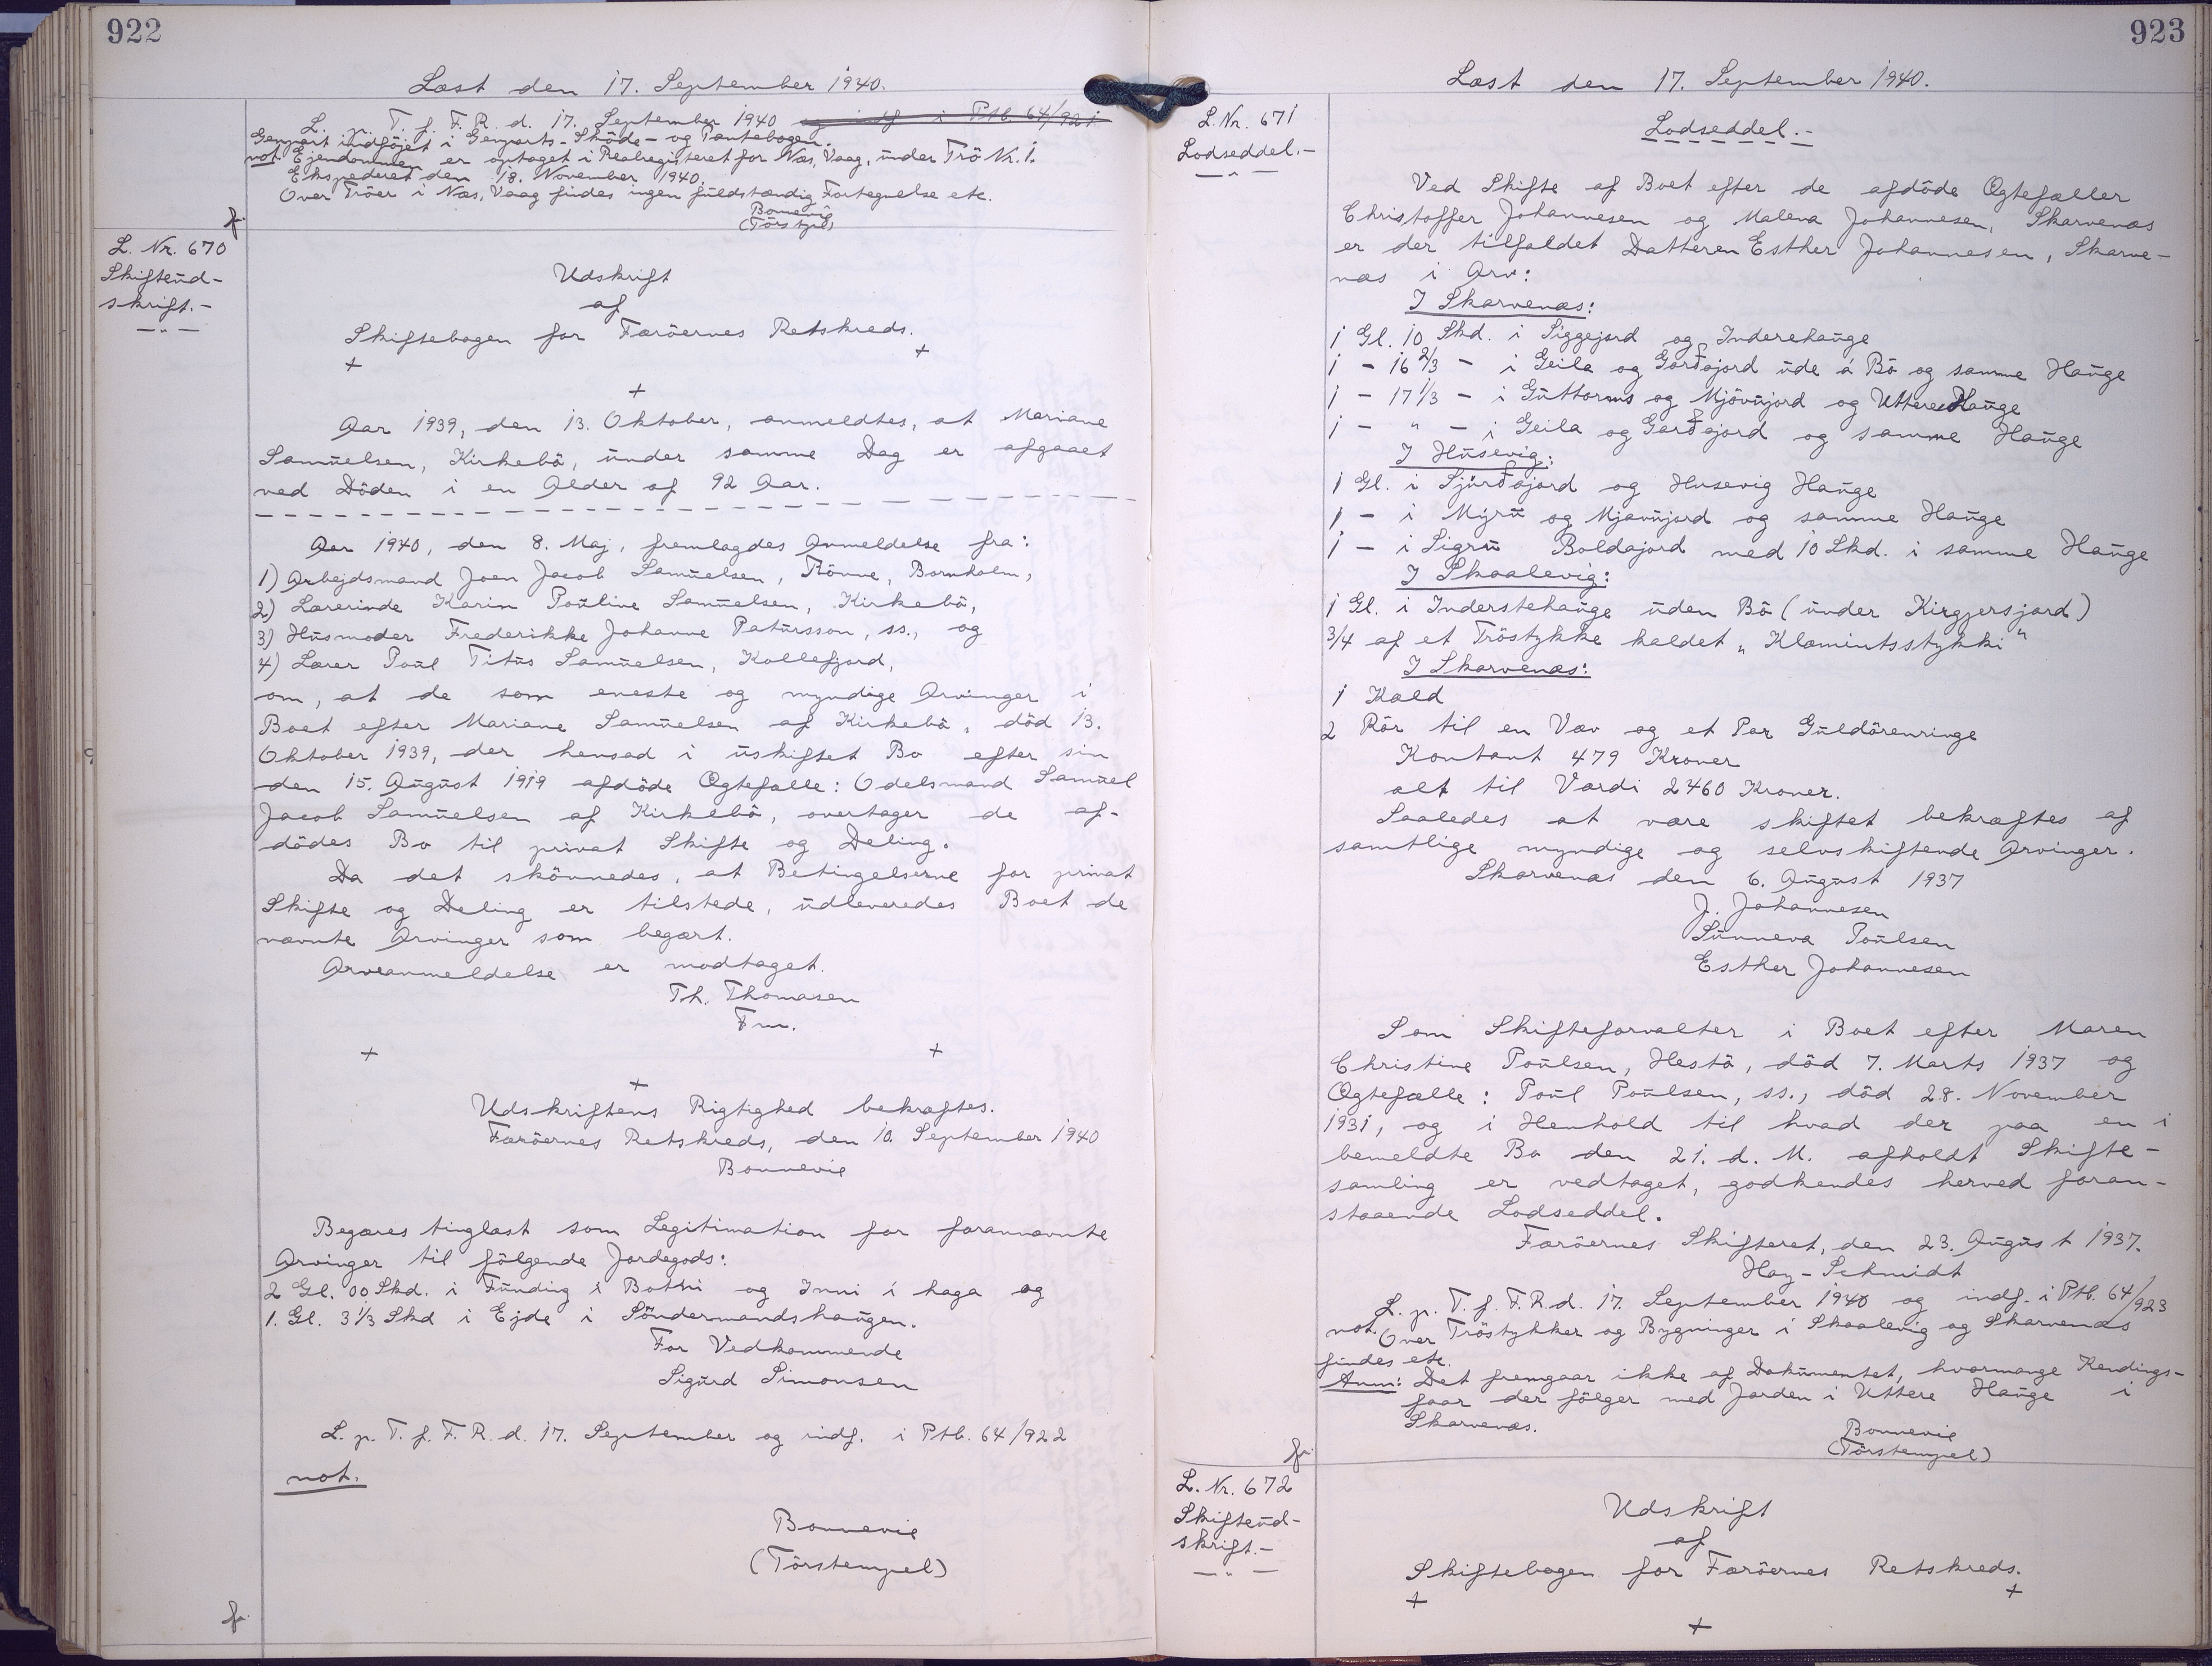 922
Læst den 17. September 1940.
L. p. T. f. F. R. d. 17. September 1940 og indf. i Ptb. 64/921
Genpart indföjet i Genparts-Sköde- og Pantebogen.
not Ejendommen er optaget i Realregisteret for Næs, Vaag, under Trö Nr. 1.
Ekspederet den 18. November 1940.
Over Tröer i Næs, Vaag findes ingen fuldstændig Fortegnelse etc.
Bonnevie
(Törstpl)
fr.
L. Nr. 670
Skifteud-
skrift.-
Udskrift
af
Skiftebogen for Færöernes Retskreds.
+ +
+
Aar 1939, den 13. Oktober, anmeldtes, at Mariane
Samuelsen, Kirkebö, under samme Dag er afgaaet
ved Döden i en Alder af 92 Aar.
Aar 1940, den 8. Maj, fremlagdes Anmeldelse fra:
1) Arbejdsmand Joen Jacob Samuelsen, Rönne, Bornholm,
2) Lærerinde Karin Pouline Samuelsen, Kirkebö,
3) Husmoder Frederikke Johanne Patursson, ss., og
4) Lærer Poul Titus Samuelsen, Kollefjord,
om, at de som eneste og myndige Arvinger i
Boet efter Mariane Samuelsen af Kirkebö, död 13.
Oktober 1939, der hensad i uskiftet Bo efter sin
den 15. August 1919 afdöde Ægtefælle: Odelsmand Samuel
Jacob Samuelsen af Kirkebö, overtager de af-
dödes Bo til privat Skifte og Deling.
Da det skönnedes, at Betingelserne for privat
Skifte og Deling er tilstede, udleveredes Boet de
nævnte Arvinger som begært.
Arveanmeldelse er modtaget.
Th. Thomasen
Fm.
+ +
+
Udskriftens Rigtighed bekræftes.
Færöernes Retskreds, den 10. September 1940
Bonnevie
Begæres tinglæst som Legitimation for forannævnte
Arvinger til fölgende Jordegods:
2 Gl. 00 Skd. i Funding i Botni og Inni i haga og
1. Gl. 3 1/3 Skd i Ejde i Söndermandshaugen.
For Vedkommende
Sigurd Simonsen
L. p. T. f. F. R. d. 17. September og indf. i Ptb. 64/922
not.
Bonnevie
(Törstempel)
fr.
923
Læst den 17. September 1940.
L. Nr. 671
Lodseddel.-
Lodseddel.-
Ved Skifte af Boet efter de afdöde Ægtefæller
Christoffer Johannesen og Malena Johannesen, Skarvenæs
er der tilfaldet Datteren Esther Johannesen, Skarve-
næs i Arv:
I Skarvenæs:
1 Gl. 10 Skd. i Siggejord og Inderehauge
1 - 16 2/3 - i Geila og Garðajord ude á Bö og samme Hauge
1 - 17 1/3 - i Guttorms og Mjövujord og Uttere Hauge
1 - " - i Geila og Garðajord og samme Hauge
I Husevig:
1 Gl. i Sjúrðajord og Husevig Hauge
1 - i Mýru og Mjavujord og samme Hauge
1 - i Sigru Boldajord med 10 Skd. i samme Hauge
I Skaalevig:
1 Gl. i Inderstehauge uden Bö (under Kirgjersjord)
3/4 af et Tröstykke kaldet "Klæmintsstykki"
I Skarvenæs:
1 Kald
2 Rör til en Væv og et Par Guldörenringe
Kontant 479 Kroner
alt til Værdi 2460 Kroner.
Saaledes at være skiftet bekræftes af
samtlige myndige og selvskiftende Arvinger.
Skarvenæs den 6. August 1937
J. Johannesen
Sunneva Poulsen
Esther Johannesen
Som Skifteforvalter i Boet efter Maren
Christine Poulsen, Hestö, död 7. Marts 1937 og
Ægtefælle: Poul Poulsen, ss., död 28. November
1931, og i Henhold til hvad der paa en i
bemeldte Bo den 21. d. M. afholdt Skifte-
samling er vedtaget, godkendes herved foran-
staaende Lodseddel.
Færöernes Skifteret, den 23. August 1937.
Hay-Schmidt
L. p. T. f. F. R. d. 17. September 1940 og indf. i Ptb. 64/923
not. Over Tröstykker og Bygninger i Skaalevig og Skarvenæs
findes etc.
Anm: Det fremgaar ikke af Dokumentet, hvormange Kendings-
faar der fölger med Jorden i Uttere Hauge i
Skarvenæs.
Bonnevie
(Törstempel)
fr.
L. Nr. 672
Skifteud-
skrift.-
Udskrift
af
Skiftebogen for Færöernes Retskreds.
+ +
+